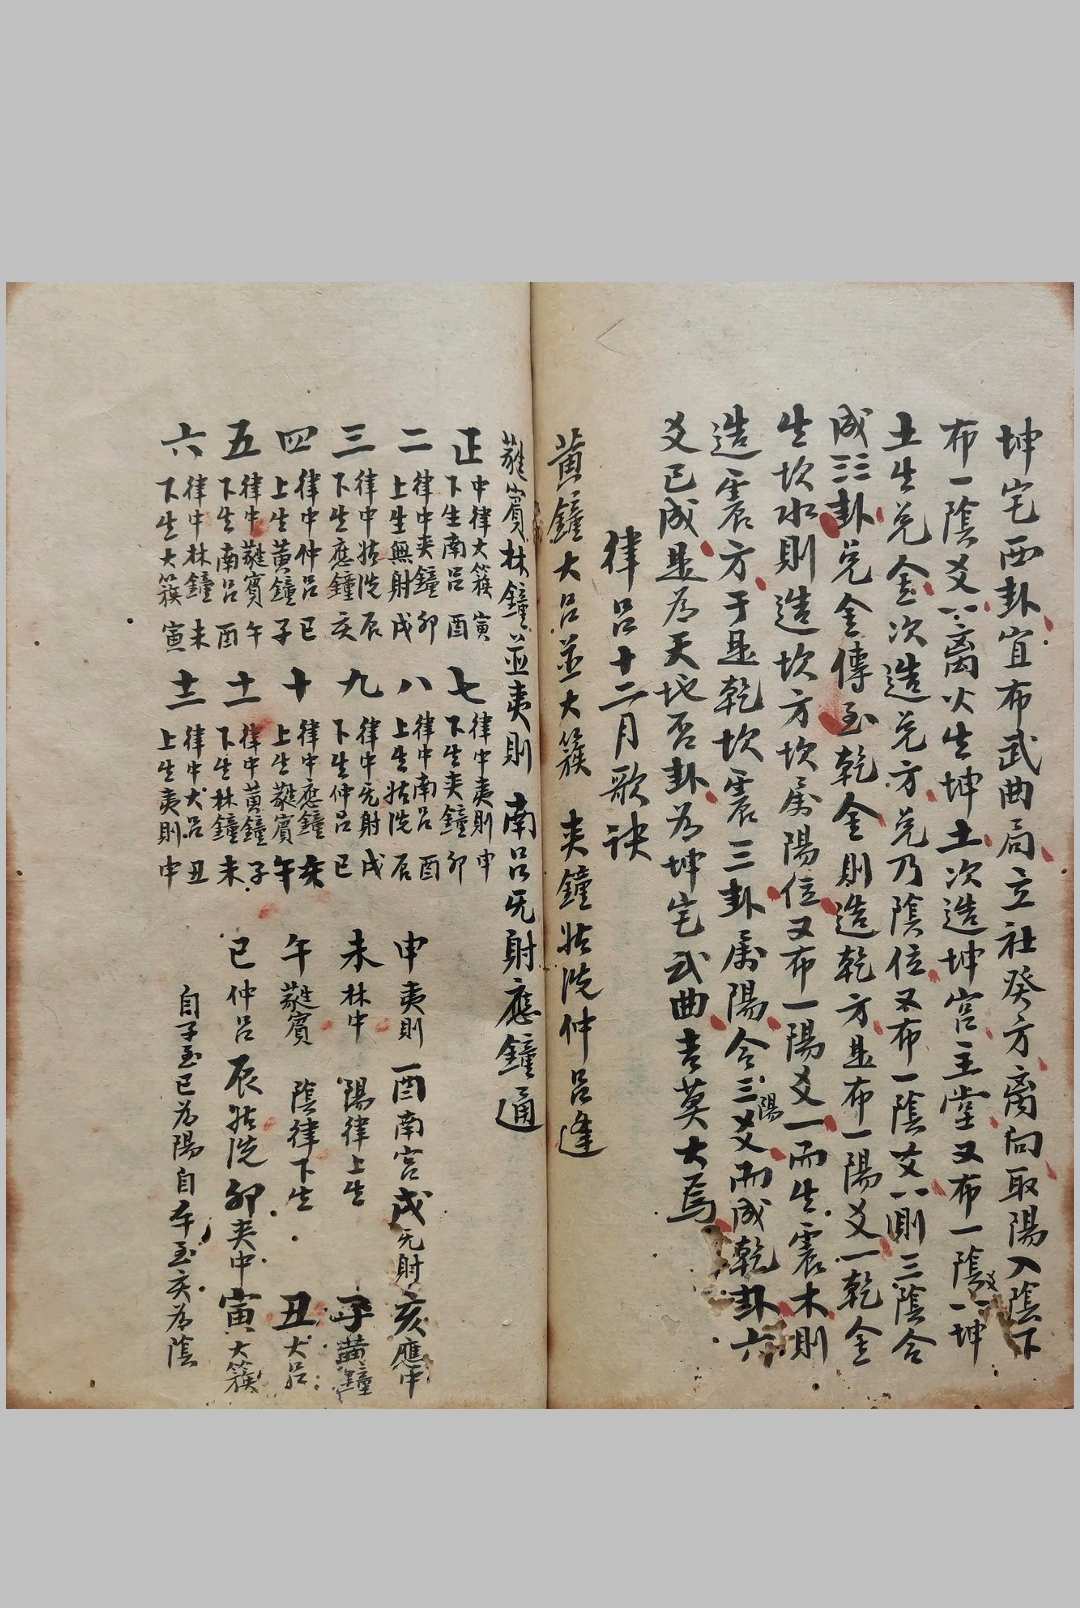 坤宅西卦宜布武曲局立社癸方离向取陽入陰下
布一陰爻⚋离火生坤土次造坤宫主堂又布一陰爻⚋坤
土生兑金次造兑方兑乃陰位又布一陰爻⚋則三陰合
成☷卦兑金傳至乾金則造乾方是布一陽爻一乾金
生坎水則造坎方坎属陽位又布一陽爻一而生震木則
造震方于是乾坎震三卦属陽合三陽爻而成乾卦六
爻已成是為天地否卦為坤宅武曲吉莫大焉
律吕十二月歌訣
黄鐘大吕並大簇 夹鐘姑洗仲吕逢
蕤賓林鐘並夷則 南吕旡射應鐘通
正 中律大簇寅 下生南吕酉
二 律中夹鐘卯 上生無射戌
三 律中姑洗辰 下生應鐘亥
四 律中仲吕巳 上生黄鐘子
五 律中蕤賓午 下生南吕酉
六 律中林鐘未 下生大簇寅
七 律中夷則申 下生夹鐘卯
八 律中南吕酉 上生姑洗辰
九 律中旡射戌 下生仲吕巳
十 律中應鐘亥 上生蕤賓午
十一 律中黄鐘子 下生林鐘未
十二 律中大吕丑 上生夷則申
申夷則 酉南宫 戌旡射 亥應中
未林中 陽律上生 子黄鐘
午蕤賓 陰律下生 丑大吕
巳仲吕 辰姑洗 卯夹中 寅大簇
自子至巳為陽自午至亥為陰